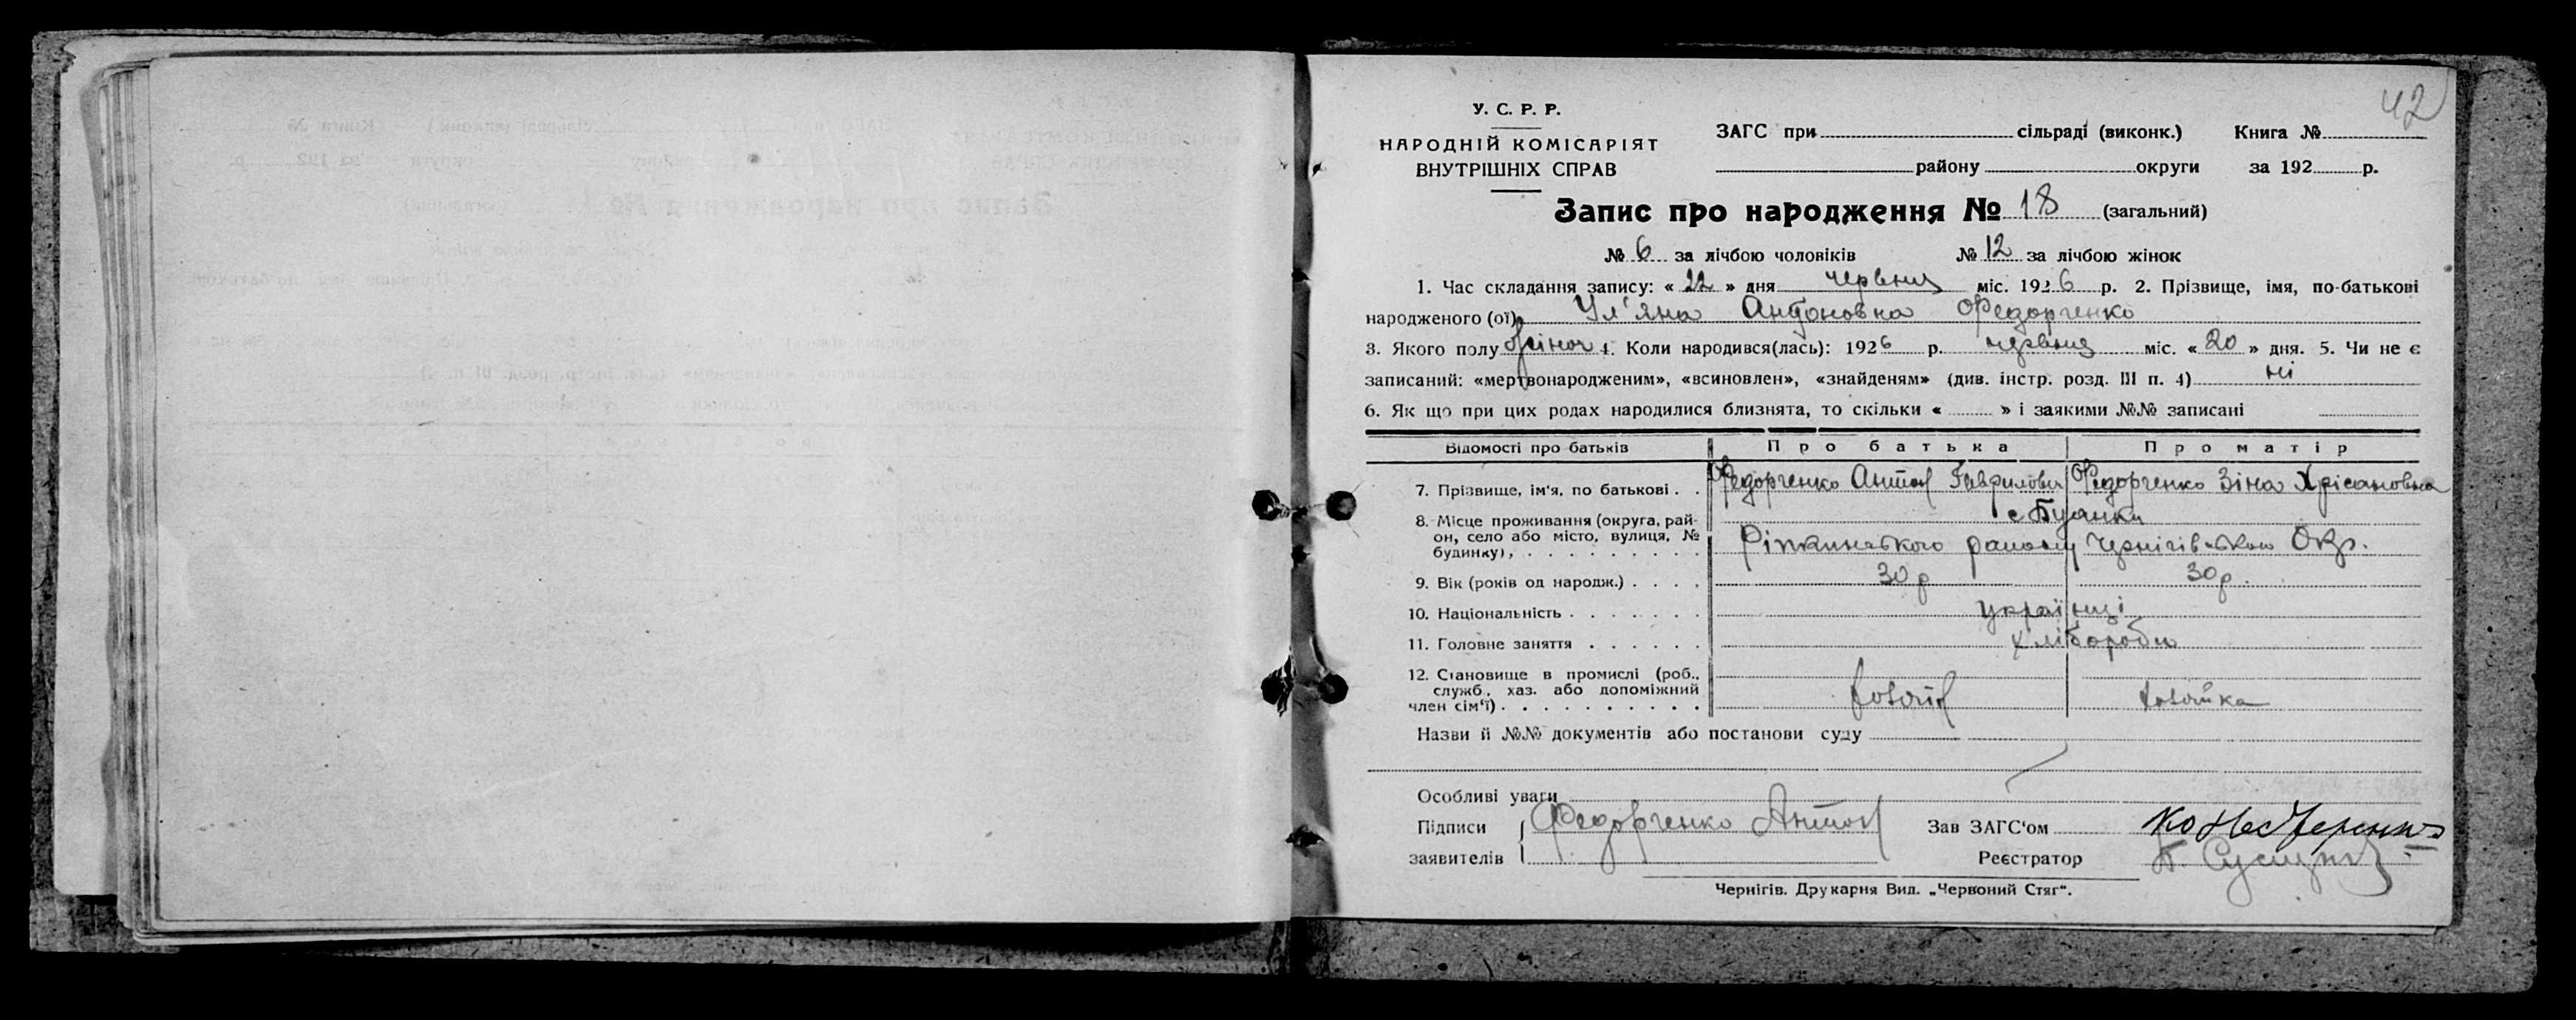 42
У. С. Р. Р.
НАРОДНІЙ КОМІСАРІЯТ
ВНУТРІШНІХ СПРАВ
ЗАГС при сільраді (виконк.) Книга №
району округи за 192 р.
Запис про народження № 18 (загальний)
№ 6 за лічбою чоловіків № 12 за лічбою жінок
1. Час складання запису: « 22 » дня червня міс. 1926 р. 2. Прізвище, імя, по-батькові
народженого (ої) Ул'яна Антоновна Федорченко
3. Якого полу жіноч 4. Коли народився(лась): 1926 р. червня міс. « 20 » дня. 5. Чи не є
записаний: «мертвонародженим», «всиновлен», «знайденям» (див. інстр. розд. III п. 4) ні
6. Як що при цих родах народилися близнята, то скільки « » і заякими №№ записані
Відомості про батьків Про батька Про матір
7. Прізвище, ім'я, по батькові . . Федорченко Антон Гаврилович Федорченко Зіна Хрісановна
8. Місце проживання (округа, рай-
он, село або місто, вулиця, №
будинку), с
Ріпкинського району Чернігівською Окр.
9. Вік (років од народж.) . . . . 30 р 30 р.
10. Національність . . . . . . . українці
11. Головне заняття . . . . . . хлібороби
12. Становище в промислі (роб.,
служб., хаз. або допоміжний
член сім'ї) . . . . . . . . . . хозяїн хозяйка
Назви й №№ документів або постанови суду
Особливі уваги
Підписи Федорченко Антон Зав ЗАГС'ом
заявителів Реєстратор
Чернігів. Друкарня Вид. „Червоний Стяг“.